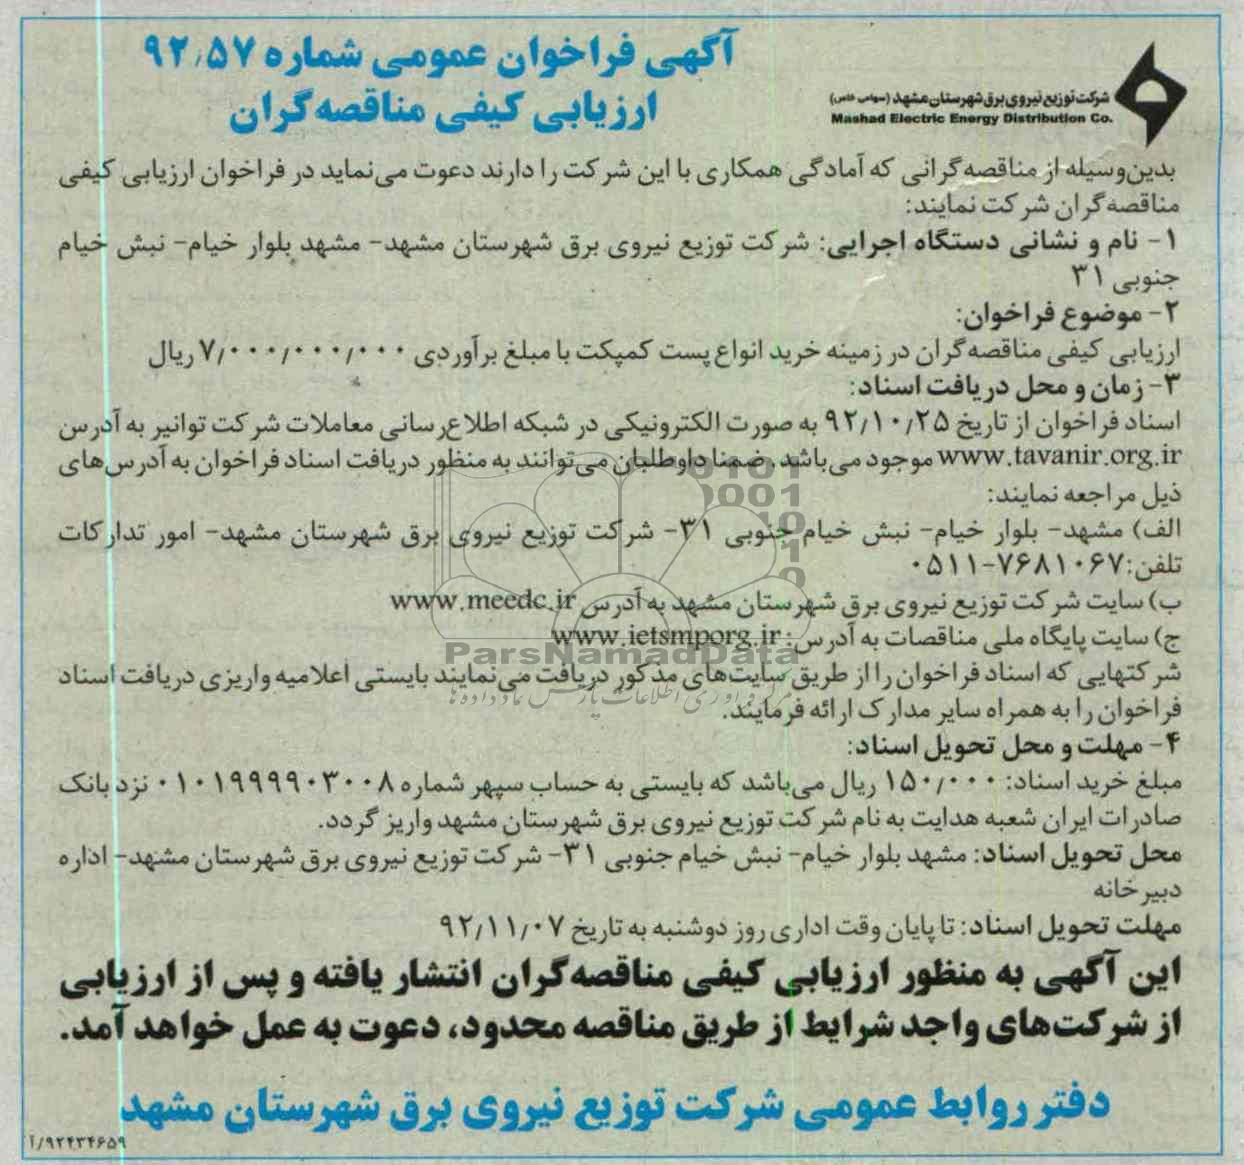 آگهی فراخوان عمومی شماره ۹۲٫۵۷
ارزیابی کیفی مناقصه‌گران
شرکت توزیع نیروی برق شهرستان مشهد (سهامی خاص)
Mashad Electric Energy Distribution Co.
بدین‌وسیله از مناقصه‌گرانی که آمادگی همکاری با این شرکت را دارند دعوت می‌نماید در فراخوان ارزیابی کیفی
مناقصه‌گران شرکت نمایند:
۱- نام و نشانی دستگاه اجرایی: شرکت توزیع نیروی برق شهرستان مشهد- مشهد بلوار خیام- نبش خیام
جنوبی ۳۱
۲- موضوع فراخوان:
ارزیابی کیفی مناقصه‌گران در زمینه خرید انواع پست کمپکت با مبلغ برآوردی ۷/۰۰۰/۰۰۰/۰۰۰ ریال
۳- زمان و محل دریافت اسناد:
اسناد فراخوان از تاریخ ۹۲/۱۰/۲۵ به صورت الکترونیکی در شبکه اطلاع‌رسانی معاملات شرکت توانیر به آدرس
www.tavanir.org.ir موجود می‌باشد. ضمنا داوطلبان می‌توانند به منظور دریافت اسناد فراخوان به آدرس‌های
ذیل مراجعه نمایند:
الف) مشهد- بلوار خیام- نبش خیام جنوبی ۳۱- شرکت توزیع نیروی برق شهرستان مشهد- امور تدارکات
تلفن: ۷۶۸۱۰۶۷-۰۵۱۱
ب) سایت شرکت توزیع نیروی برق شهرستان مشهد به آدرس www.meedc.ir
ج) سایت پایگاه ملی مناقصات به آدرس: www.ietsmporg.ir
ParsNamadData
شرکتهایی که اسناد فراخوان را از طریق سایت‌های مذکور دریافت می‌نمایند بایستی اعلامیه واریزی دریافت اسناد
فراخوان را به همراه سایر مدارک ارائه فرمایند.
۴- مهلت و محل تحویل اسناد:
مبلغ خرید اسناد: ۱۵۰/۰۰۰ ریال می‌باشد که بایستی به حساب سپهر شماره ۰۱۰۱۹۹۹۹۰۳۰۰۸ نزد بانک
صادرات ایران شعبه هدایت به نام شرکت توزیع نیروی برق شهرستان مشهد واریز گردد.
محل تحویل اسناد: مشهد بلوار خیام- نبش خیام جنوبی ۳۱- شرکت توزیع نیروی برق شهرستان مشهد- اداره
دبیرخانه
مهلت تحویل اسناد: تا پایان وقت اداری روز دوشنبه به تاریخ ۹۲/۱۱/۰۷
این آگهی به منظور ارزیابی کیفی مناقصه‌گران انتشار یافته و پس از ارزیابی
از شرکت‌های واجد شرایط از طریق مناقصه محدود، دعوت به عمل خواهد آمد.
دفتر روابط عمومی شرکت توزیع نیروی برق شهرستان مشهد
۹۲۴۳۴۶۵۹/آ